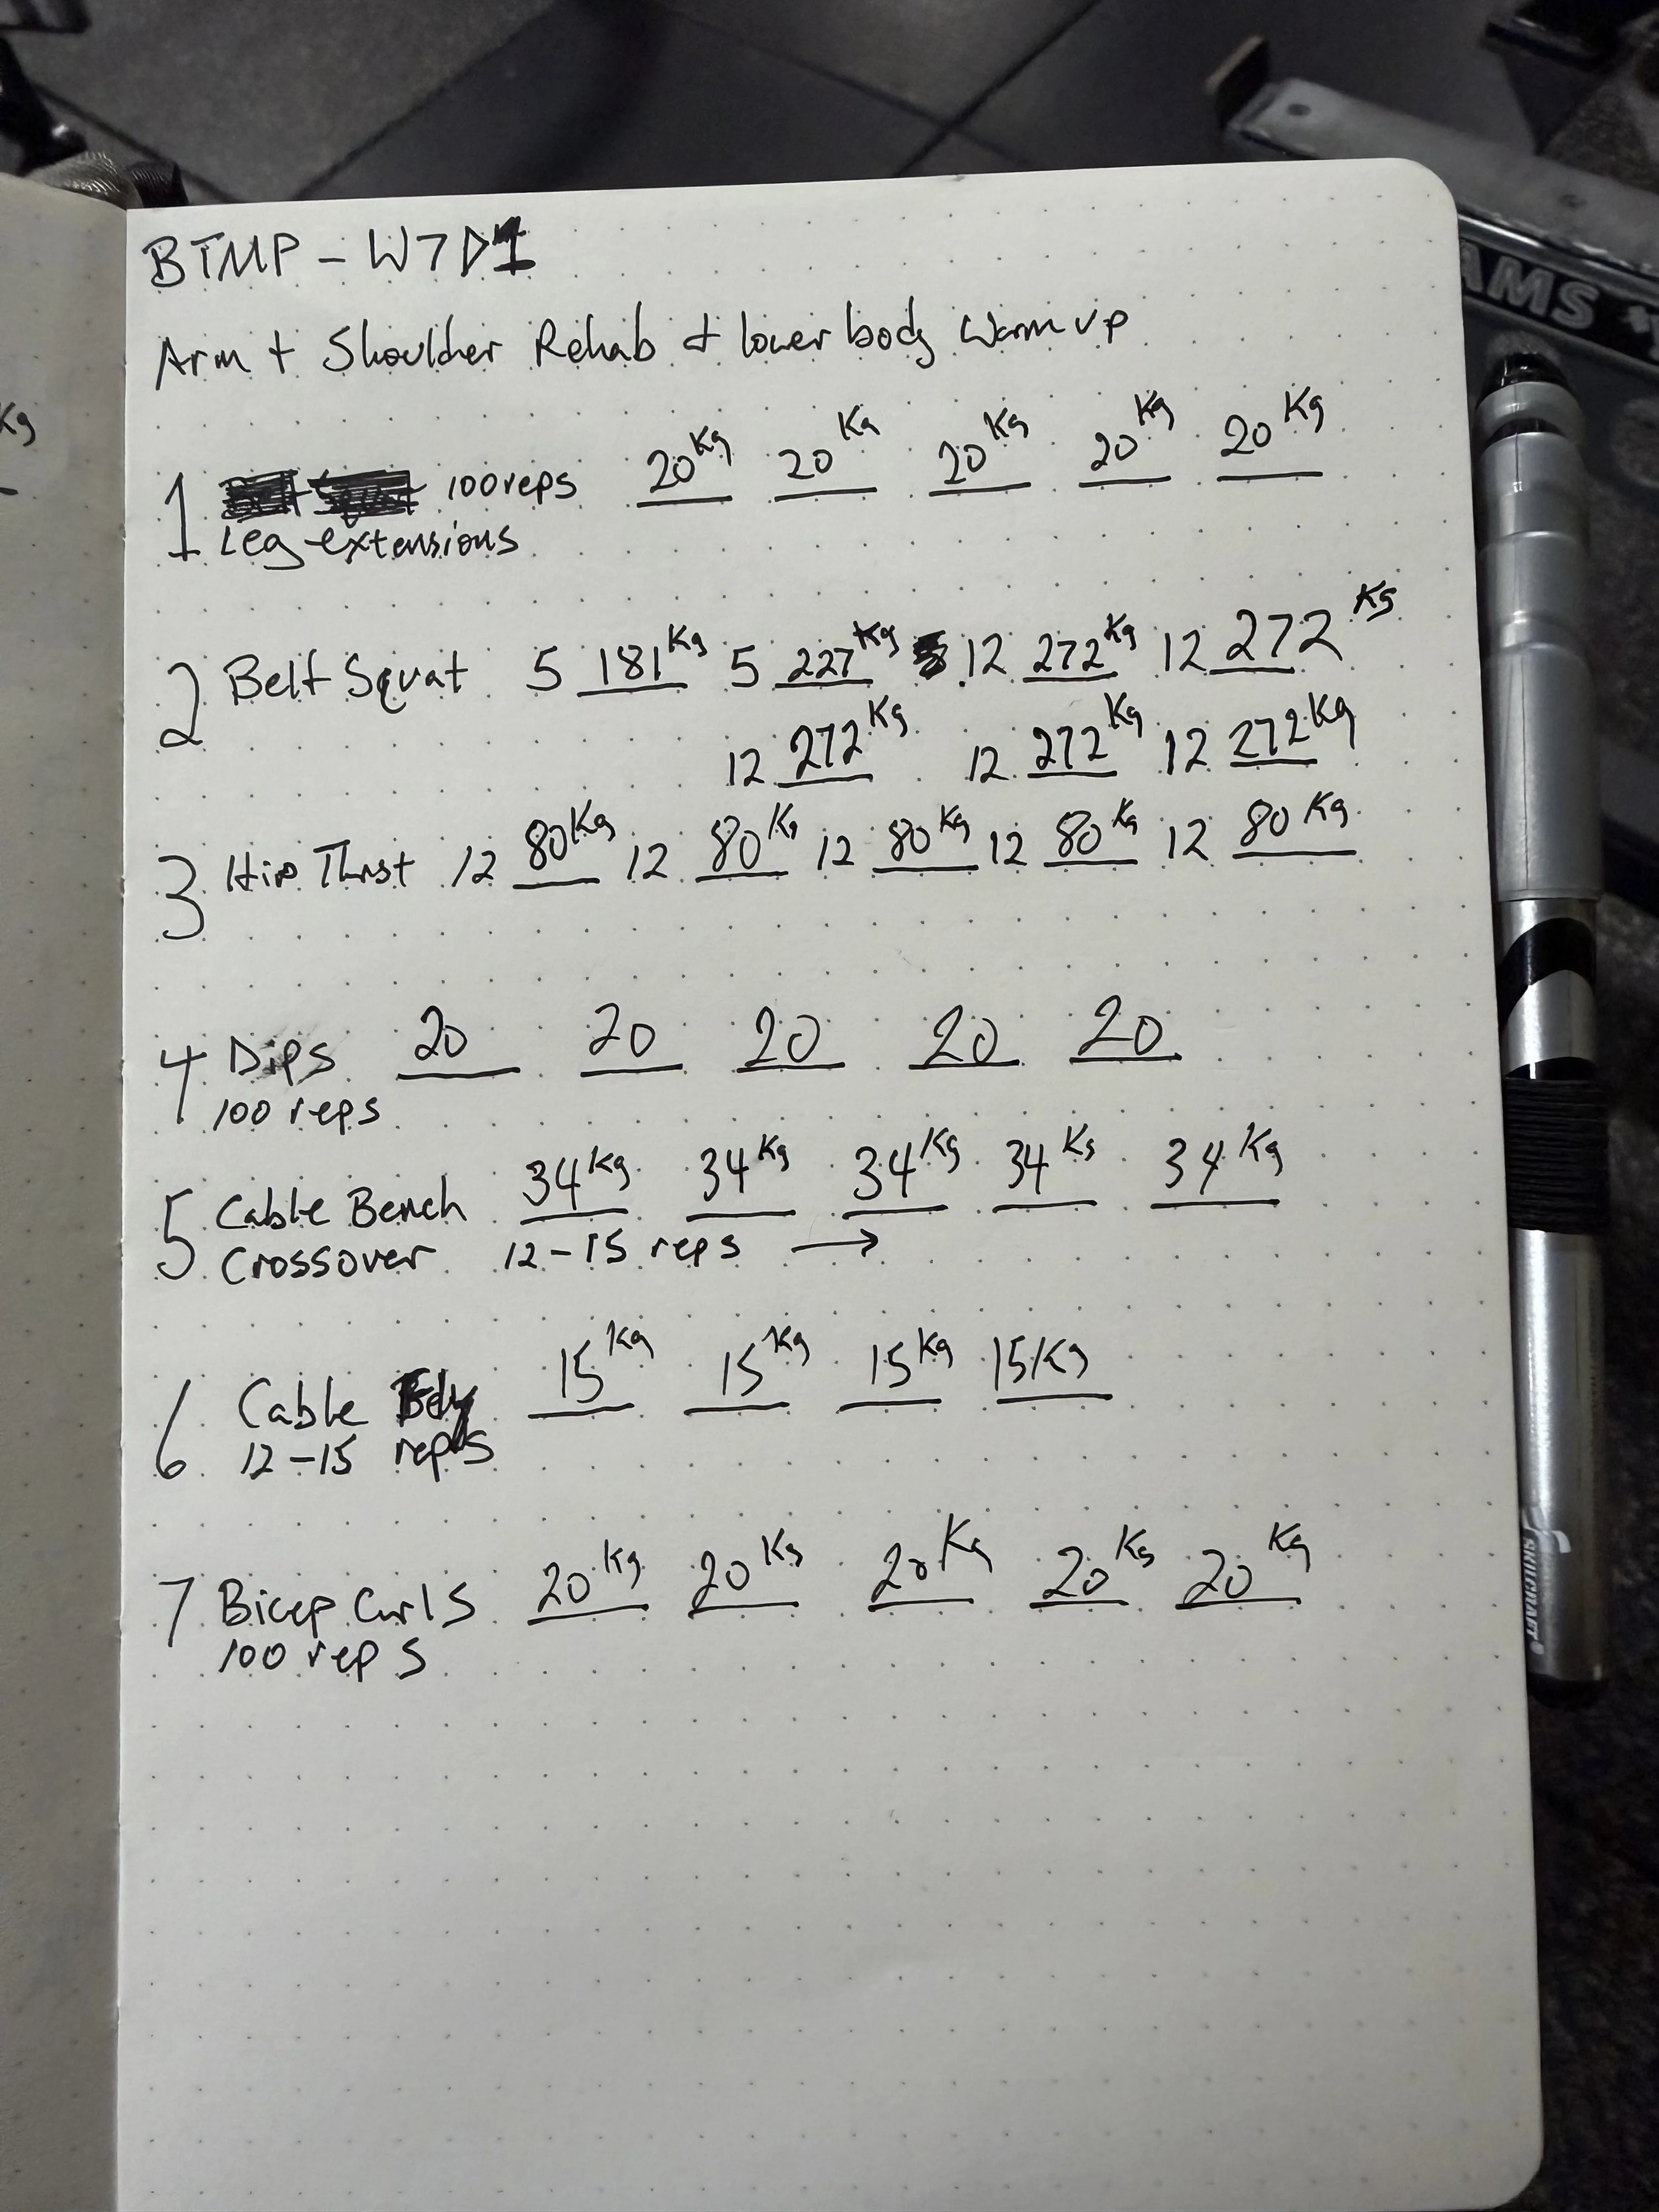 BTMP - W7D1
Arm + Shoulder Rehab + lower body Warm up
1 100 reps 20Kg 20Kg 20Kg 20Kg 20Kg
Leg extensions
2 Belt Squat 5 181Kg 5 227Kg 12 272Kg 12 272Kg
12 272Kg 12 272Kg 12 272Kg
3 Hip Thrust 12 80Kg 12 80Kg 12 80Kg 12 80Kg 12 80Kg
4 Dips 20 20 20 20 20
100 reps
5 Cable Bench 34Kg 34Kg 34Kg 34Kg 34Kg
Crossover 12-15 reps →
6 Cable Fly 15Kg 15Kg 15Kg 15Kg
12-15 reps
7 Bicep Curls 20Kg 20Kg 20Kg 20Kg 20Kg
100 reps
Kg
AMS
SKILCRAFT®